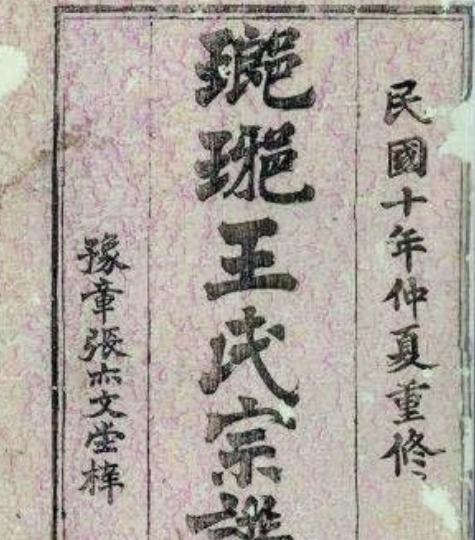 民國十年仲夏重修
瑯琊王氏宗譜
豫章張亦文堂梓